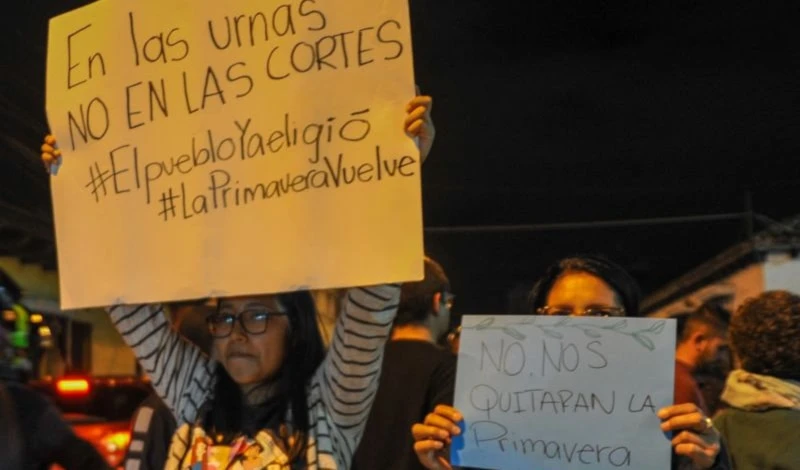 En las urnas
NO EN LAS CORTES
#ElpuebloYaeligió
#LaPrimaveraVuelve
NO NOS
QUITARAN LA
Primavera